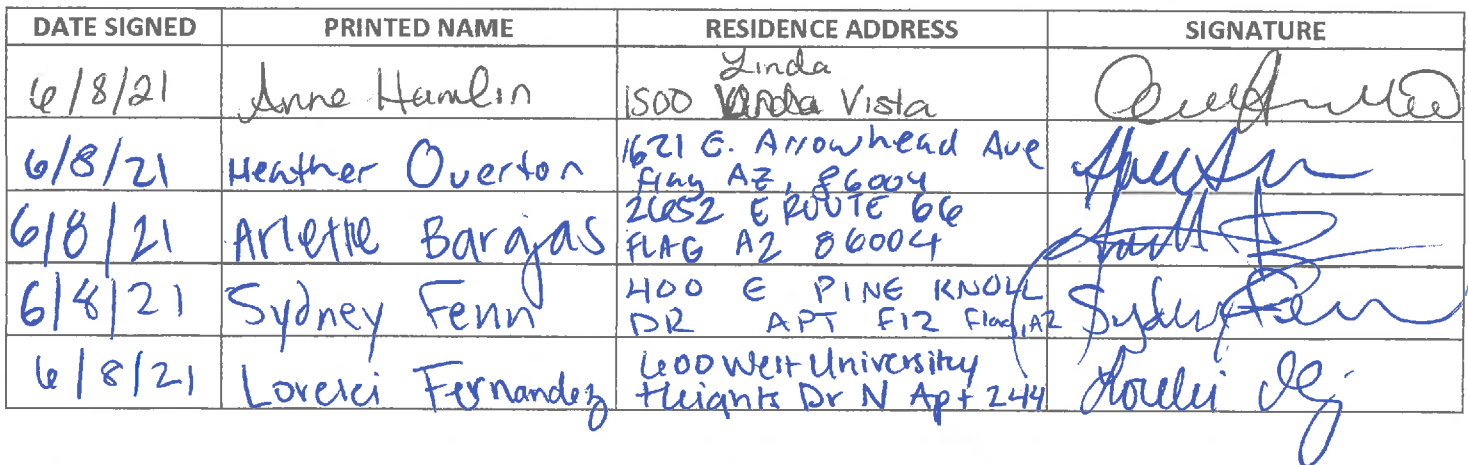 DATE SIGNED PRINTED NAME RESIDENCE ADDRESS SIGNATURE
Linda
6/8/21 Anne Hamlin 1500 Vista
6/8/21 Heather Overton 1621 E. Arrowhead Ave
Flag AZ, 86004
6/8/21 Arlette Barajas 2652 E ROUTE 66
FLAG AZ 86004
6/8/21 Sydney Fenn 400 E PINE KNOLL Sydney Fenn
DR APT F12 Flag, AZ
6/8/21 Lorelei Fernandez 600 West University
Heights Dr N Apt 244